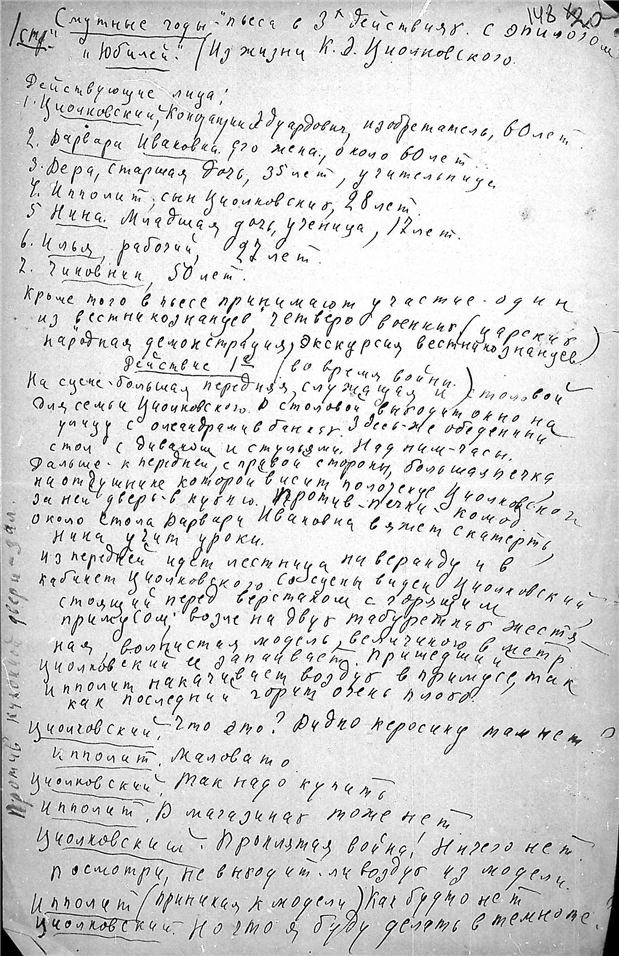 148 120
1 стр. "Смутные годы" пьеса в 3х действиях. с эпилогом
"Юбилей". (Из жизни К. Э. Циолковского.
Действующие лица:
1. Циолковский, Константин Эдуардович, изобретатель, 60 лет.
2. Варвара Ивановна. Его жена, около 60 лет.
3. Вера, старшая дочь, 35 лет, учительница
4. Ипполит, сын Циолковских, 28 лет.
5 Нина. Младшая дочь, ученица, 17 лет.
6. Илья, рабочий, 27 лет.
7. Чиновник, 50 лет.
Кроме того в пьесе принимают участие один
из вестникознанцев четверо военных (царских)
народная демонстрация, экскурсия вестникознанцев.
Действие 1е (во время войны.)
На сцене большая передняя, служащая и столовой
для семьи Циолковского. В столовой выходит окно на
улицу с олеандрами в банках. Здесь-же обеденный
стол с диваном и стульями. Над ним-часы.
Дальше-к передней, с правой стороны, большая печка,
на отдушнике которой висит полотенце Циолковского
за ней дверь-в кухню. Против-печки комод
около стола Варвара Ивановна вяжет скатерть,
Нина учит уроки.
Из передней идет лестница на веранду и в
кабинет Циолковского. Со сцены виден Циолковский,
стоящий перед верстаком с горящим
примусом возле на двух табуретках жестя-
ная, волнистая модель, величиною в метр
Циолковский ее запаивает. Пришедший
Ипполит накачивает воздух в примусе, так
как последний горит очень плохо.
Циолковский. Что это? Видно керосину там нет?
Ипполит. Маловато
Циолковский. Так надо купить
Ипполит. В магазинах тоже нет
Циолковский. Проклятая война! Ничего нет.
Посмотри, не выходит-ли воздух из модели.
Ипполит (приникая к модели) Как будто нет
Циолковский. Но что я буду делать в темноте?
Против кухонной двери-зал.